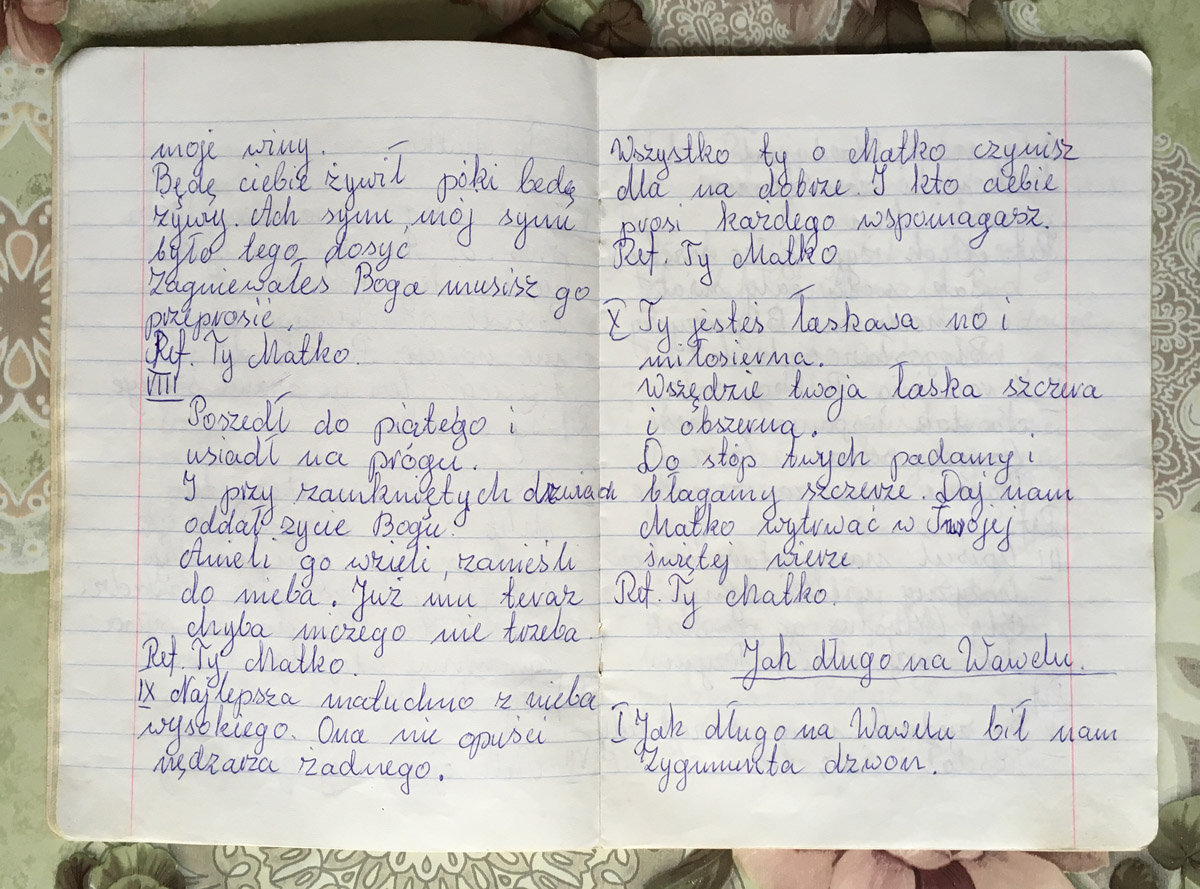 moje winy.
Będę ciebie żywił póki będę
żywy. Ach synu mój synu
było tego dosyć
Zagniewałeś Boga musisz go
przeprosić.
Ref. Ty Matko.
VIII
Poszedł do piątego i
usiadł na progu.
I przy zamkniętych drzwiach
oddał życie Bogu.
Anieli go wzieli, zanieśli
do nieba. Już mu teraz
chyba niczego nie trzeba
Ref. Ty Matko.
IX Najlepsza matuchno z nieba
wysokiego. Ona nie opuści
nędzarza żadnego.
Wszystko ty o Matko czynisz
dla na dobrze. I kto ciebie
prosi każdego wspomagasz.
Ref. Ty Matko
X Ty jesteś łaskawa no i
miłosierna.
Wszędzie twoja łaska szczera
i obszerna.
Do stóp twych padamy i
błagamy szczerze. Daj nam
Matko wytrwać w Twojej
świętej wierze
Ref. Ty Matko.
Jak długo na Wawelu.
I Jak długo na Wawelu bił nam
Zygmunta dzwon.